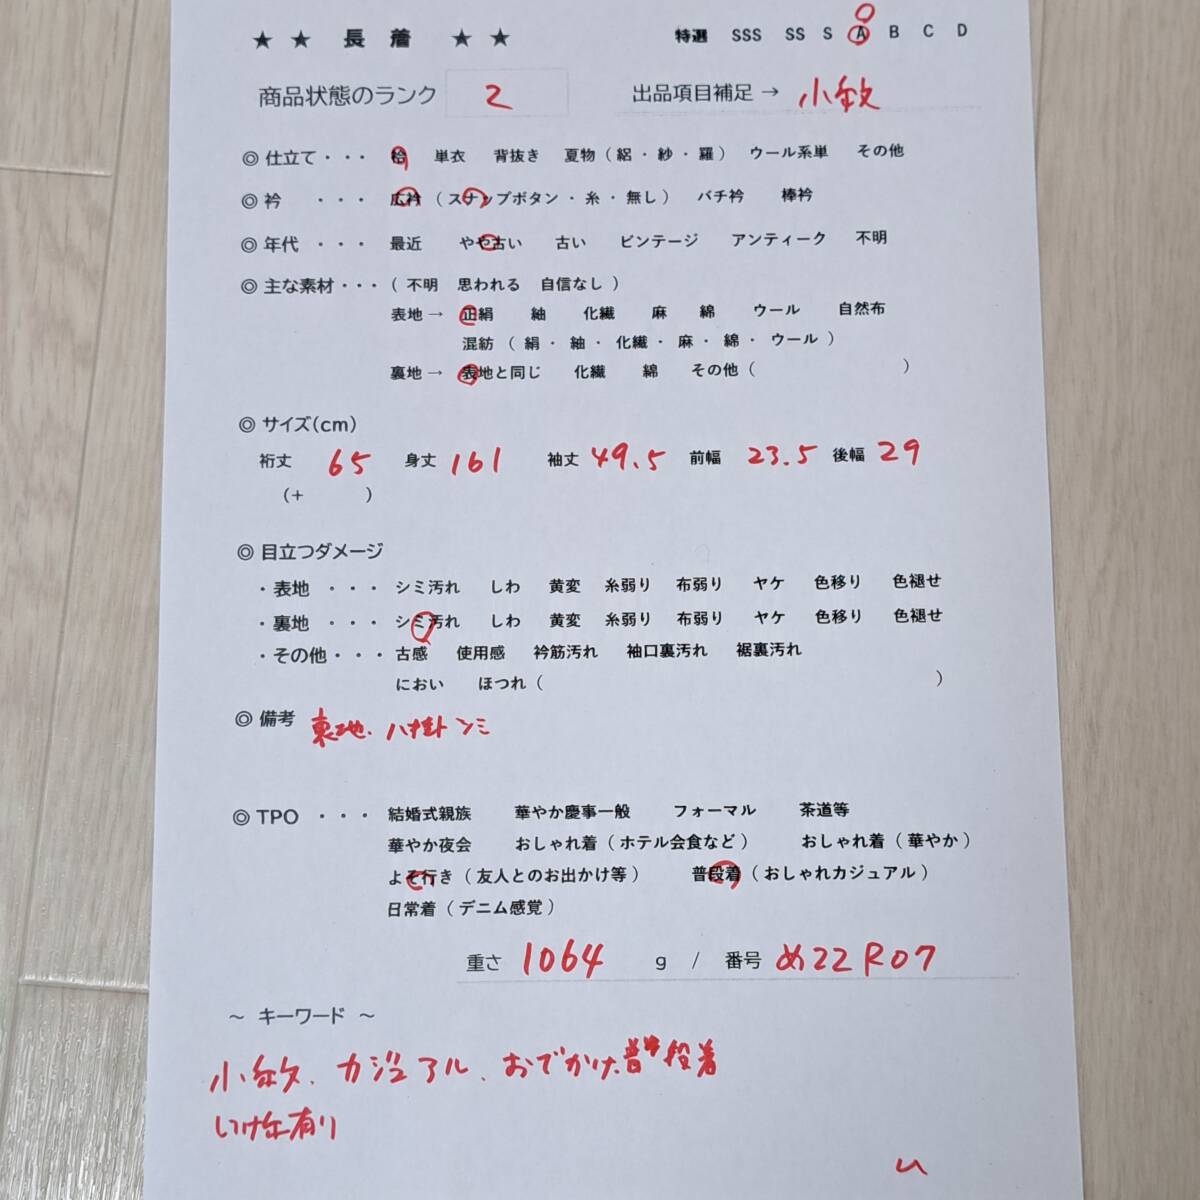 ★ ★ 長 着 ★ ★ 特選 SSS SS S A B C D
商品状態のランク 2 出品項目補足 → 小紋
◎ 仕立て・・・ 袷 単衣 背抜き 夏物(絽・紗・羅) ウール系単 その他
◎ 衿 ・・・ 広衿 (スナップボタン・糸・無し) バチ衿 棒衿
◎ 年代 ・・・ 最近 やや古い 古い ビンテージ アンティーク 不明
◎ 主な素材・・・ (不明 思われる 自信なし)
表地→ 正絹 紬 化繊 麻 綿 ウール 自然布
混紡 (絹・紬・化繊・麻・綿・ウール)
裏地→ 表地と同じ 化繊 綿 その他( )
◎ サイズ(cm)
裄丈 65 身丈 161 袖丈 49.5 前幅 23.5 後幅 29
(+ )
◎ 目立つダメージ
・表地 ・・・ シミ汚れ しわ 黄変 糸弱り 布弱り ヤケ 色移り 色褪せ
・裏地 ・・・ シミ汚れ しわ 黄変 糸弱り 布弱り ヤケ 色移り 色褪せ
・その他・・・ 古感 使用感 衿筋汚れ 袖口裏汚れ 裾裏汚れ
におい ほつれ( )
◎ 備考 裏地.八掛シミ
◎ TPO ・・・ 結婚式親族 華やか慶事一般 フォーマル 茶道等
華やか夜会 おしゃれ着(ホテル会食など) おしゃれ着(華やか)
よそ行き(友人とのお出かけ等) 普段着(おしゃれカジュアル)
日常着(デニム感覚)
重さ 1064 g / 番号 め22R07
~ キーワード ~
小紋、カジュアル、おでかけ、普段着
しつけ糸有り
い